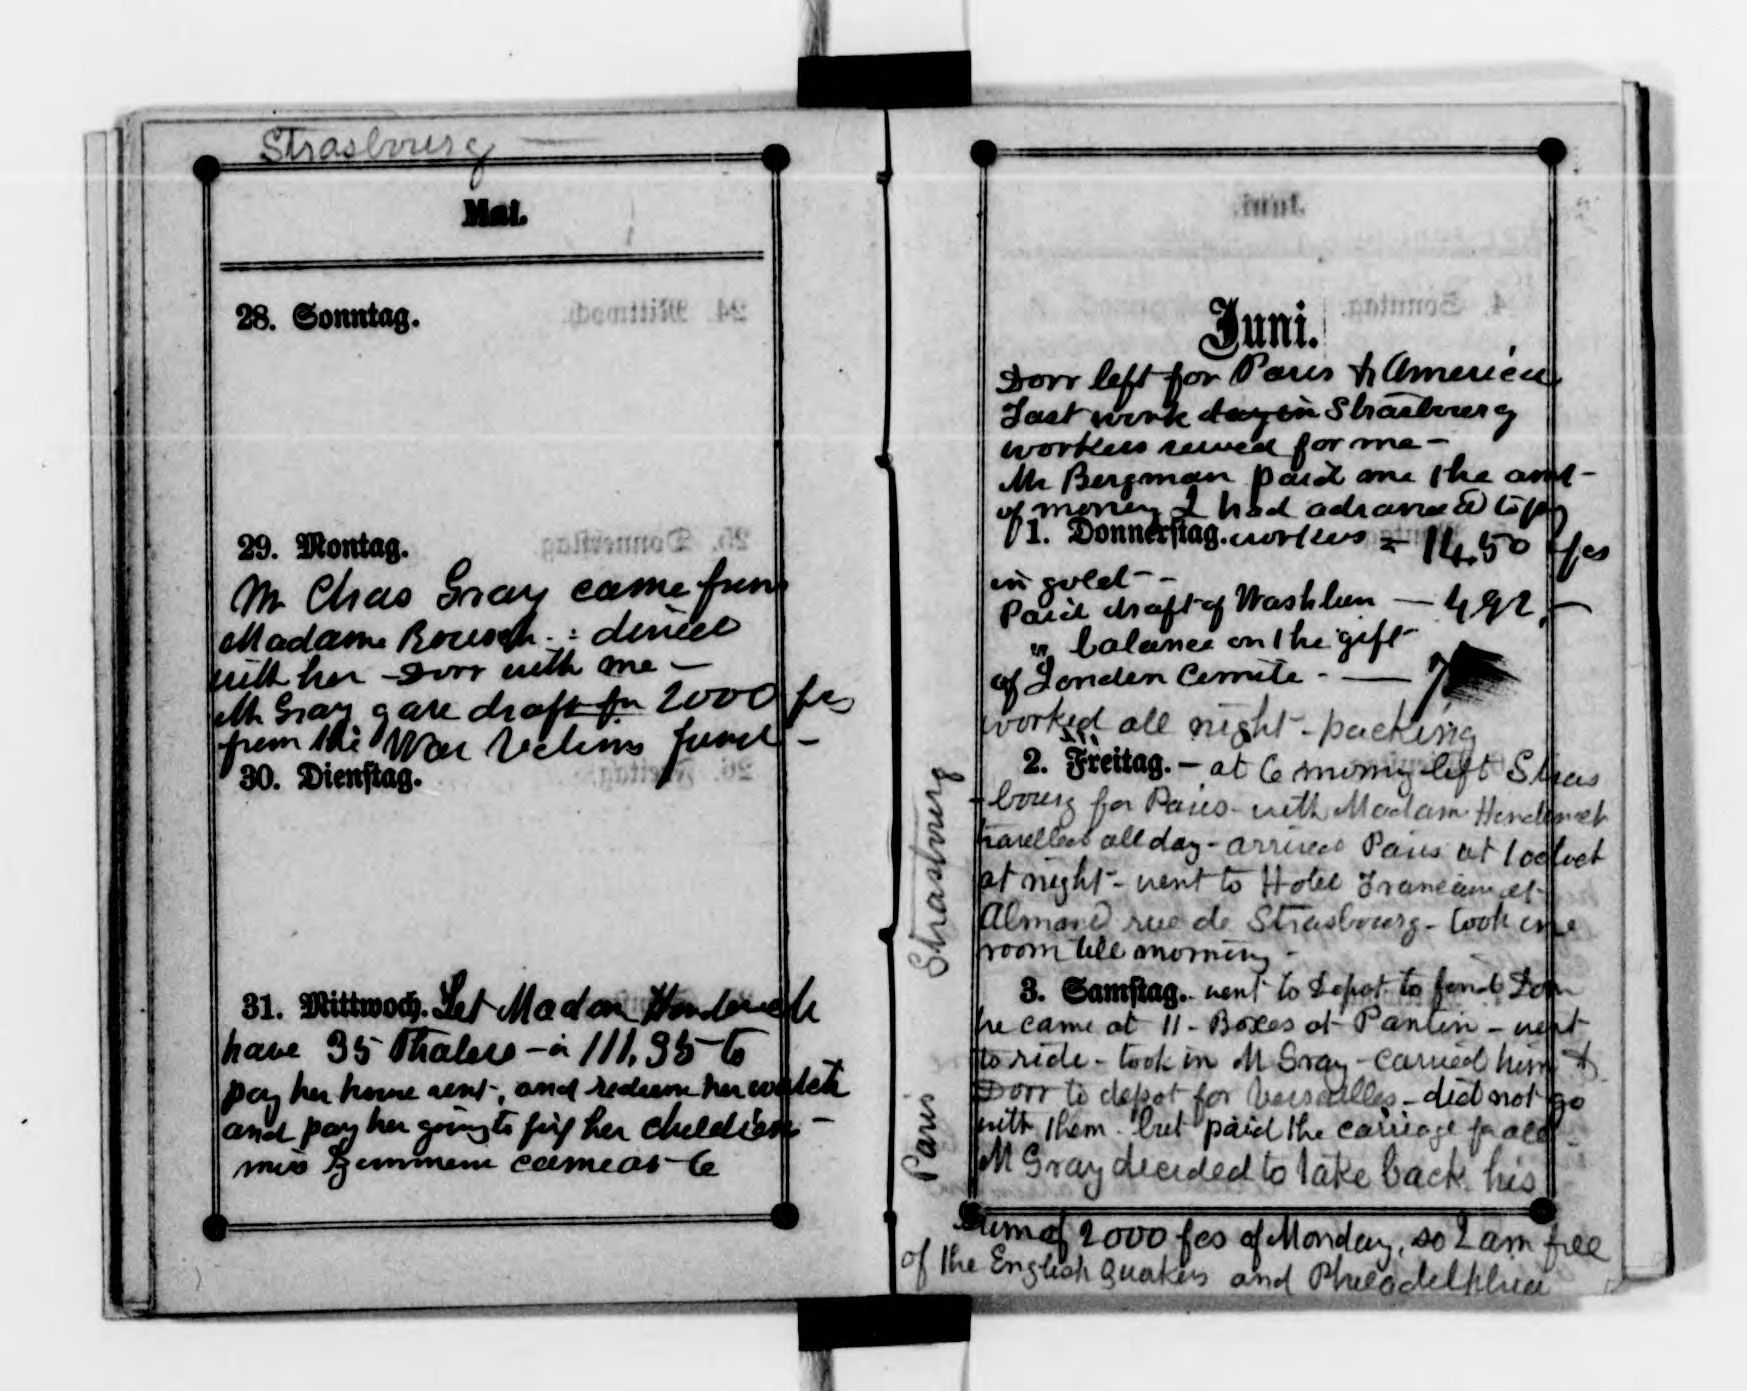 Strasbourg —
Mai.
28. Sonntag.
29. Montag.
Mr Chas Gray came from
Madame : dined
with her - Dorr with me —
Mr Gray gave draft for 2000 fcs
from the War Victims fund —
30. Dienstag.
31. Mittwoch. Let Madam
have 35 Thalers - a 111.35 to
pay her house rent, and redeem her watch
and pay her going to her children —
miss came at 6
Juni.
Dorr left for Paris & America
Last work day in Strasbourg
workers sewed for me —
Mr Bergman paid me the amt -
of money I had advanced to pay
1. Donnerstag. workers = 14.50 fcs
in gold - -
Paid draft of Washburn — 492, —
" balance on the gift
of London Comite - —
worked all night - packing
2. Freitag. - at 6 morng left Stras
- bourg for Paris - with Madam
travelled all day - arrived Paris at 1 oclock
at night - went to Hotel et
Almand rue de Strasbourg - took one
room till morning -
3. Samstag. went to Depot to find Dorr
he came at 11 - Boxes at Pantin - went
to ride - took in M Gray - carried him &
Dorr to depot for Versailles - did not go
with them. but paid the carriage for all -
M Gray decided to take back his
sum of 2000 fcs of Monday, so I am free
of the English Quakers and Philadelphia
Strasbourg
Paris